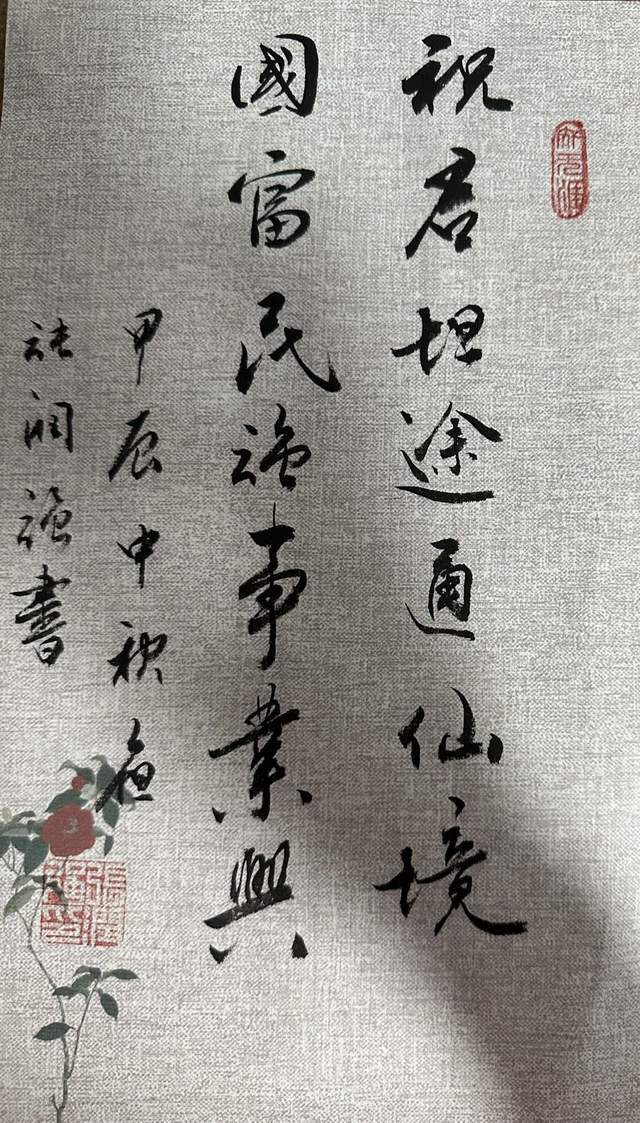 祝君坦途通仙境
國富民強事業興
甲辰中秋
张润強書